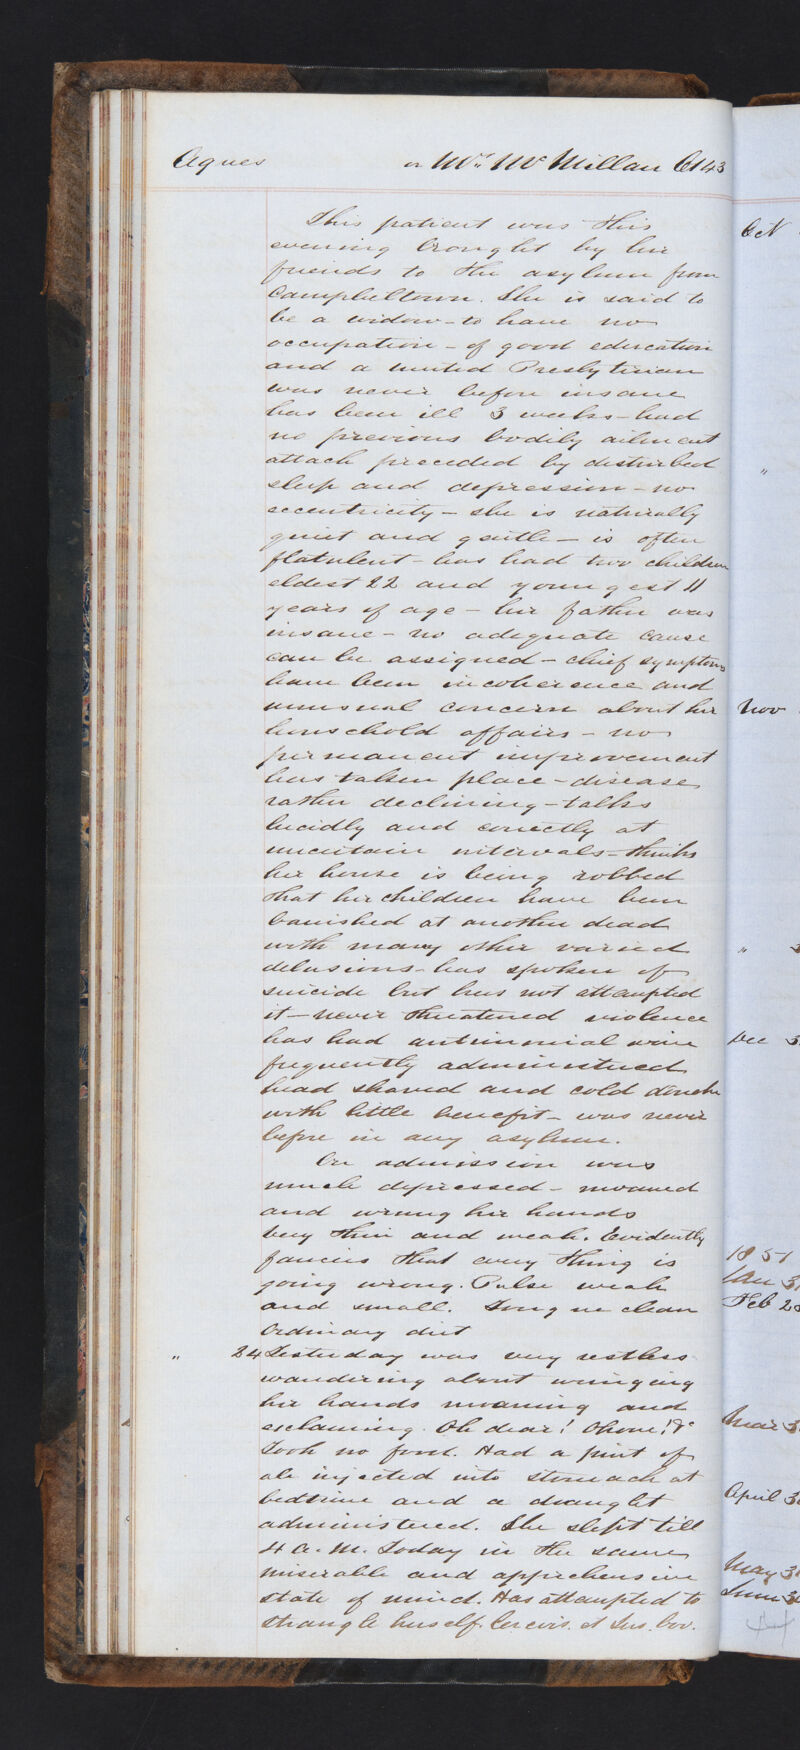 Agnes or Mrs Mc Millan Æt 43
This patient was this
evening brought by her
friends to the asylum from
Campbeltown. She is said to
be a widow - to have no
occupation - of good education
and a united Presbyterian
was never before insane
has been ill 3 weeks - had
no previous bodily ailment
attack preceded by disturbed
sleep and depression - no
eccentricity - she is naturally
quiet and gentle - is often
flatulent - has had two children
eldest 22 and youngest 11
years of age - her father was
insane - no adequate cause
can be assigned - chief symptoms
have been incoherence and
unusual concern about her
household affairs - no
permanent improvement
has taken place - disease
rather declining - talks
lucidly and correctly at
uncertain intervals - thinks
her house is being robbed
that her children have been
banished at another dead
with many other varied
delusions - has spoken of
suicide but has not attempted
it - never threatened violence
has had antimonial wine
frequently administered
head shaved and cold douche
with little benefit - was never
before in any asylum.
On admission was
much depressed - moaned
and wrung her hands
very thin and weak. Evidently
fancies that every thing is
going wrong. Pulse weak
and small. Tongue clean
Ordinary diet
" 24 Yesterday was very restless
wandering about wringing
her hands moaning and
exclaiming. Oh dear! Ohone! &c
Took no food. Had a pint of
ale injected into stomach at
bedtime and a draught
administered. She slept till
4 a.m. Today in the same
miserable and apprehensive
state of mind. Has attempted to
strangle herself. Cerevis. et Jus. bov.
Oct
"
Nov
" 3
Dec 3
1851
Jan 31
Feb 28
Mar 3
April 3
May 3
June 3